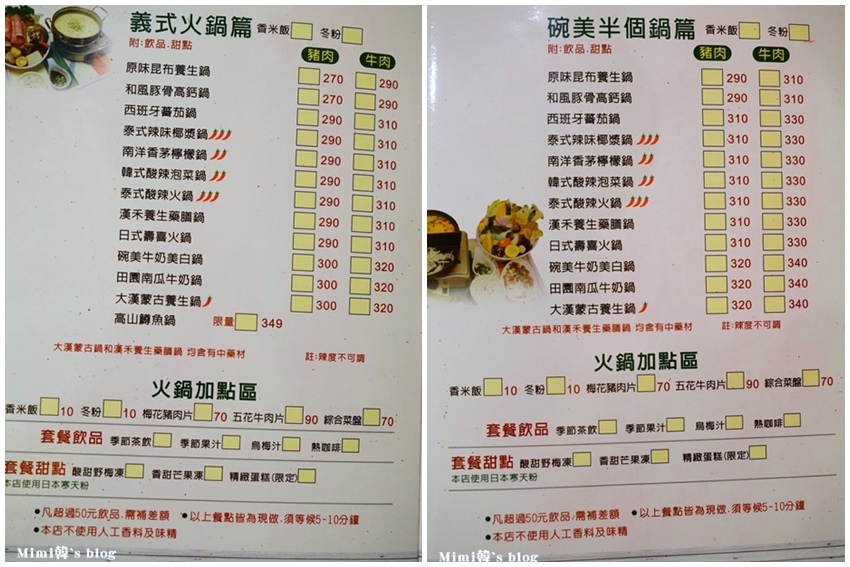 義式火鍋篇 香米飯 冬粉
附:飲品.甜點
豬肉 牛肉
原味昆布養生鍋 270 290
和風豚骨高鈣鍋 270 290
西班牙蕃茄鍋 290 310
泰式辣味椰漿鍋 290 310
南洋香茅檸檬鍋 290 310
韓式酸辣泡菜鍋 290 310
泰式酸辣火鍋 290 310
漢禾養生藥膳鍋 290 310
日式壽喜火鍋 290 310
碗美牛奶美白鍋 300 320
田園南瓜牛奶鍋 300 320
大漢蒙古養生鍋 300 320
高山鱒魚鍋 限量 349
大漢蒙古鍋和漢禾養生藥膳鍋 均含有中藥材 註:辣度不可調
火鍋加點區
香米飯 10 冬粉 10 梅花豬肉片 70 五花牛肉片 90 綜合菜盤 70
套餐飲品 季節茶飲 季節果汁 烏梅汁 熱咖啡
套餐甜點 酸甜野梅凍 香甜芒果凍 精緻蛋糕(限定)
本店使用日本寒天粉
•凡超過50元飲品.需補差額 •以上餐點皆為現做.須等候5-10分鐘
•本店不使用人工香料及味精
Mimi韓`s blog
碗美半個鍋篇 香米飯 冬粉
附:飲品.甜點
豬肉 牛肉
原味昆布養生鍋 290 310
和風豚骨高鈣鍋 290 310
西班牙蕃茄鍋 310 330
泰式辣味椰漿鍋 310 330
南洋香茅檸檬鍋 310 330
韓式酸辣泡菜鍋 310 330
泰式酸辣火鍋 310 330
漢禾養生藥膳鍋 310 330
日式壽喜火鍋 310 330
碗美牛奶美白鍋 320 340
田園南瓜牛奶鍋 320 340
大漢蒙古養生鍋 320 340
大漢蒙古鍋和漢禾養生藥膳鍋 均含有中藥材 註:辣度不可調
火鍋加點區
香米飯 10 冬粉 10 梅花豬肉片 70 五花牛肉片 90 綜合菜盤 70
套餐飲品 季節茶飲 季節果汁 烏梅汁 熱咖啡
套餐甜點 酸甜野梅凍 香甜芒果凍 精緻蛋糕(限定)
本店使用日本寒天粉
•凡超過50元飲品.需補差額 •以上餐點皆為現做.須等候5-10分鐘
•本店不使用人工香料及味精
Mimi韓`s blog